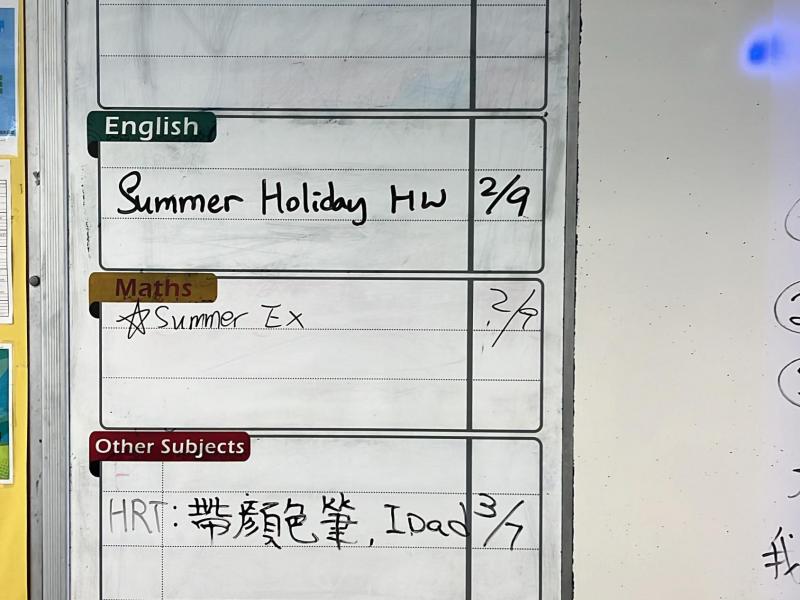 English
Summer Holiday HW 2/9
Maths
☆Summer Ex 2/9
Other Subjects
HRT: 帶顏色筆, IDad 3/7
我